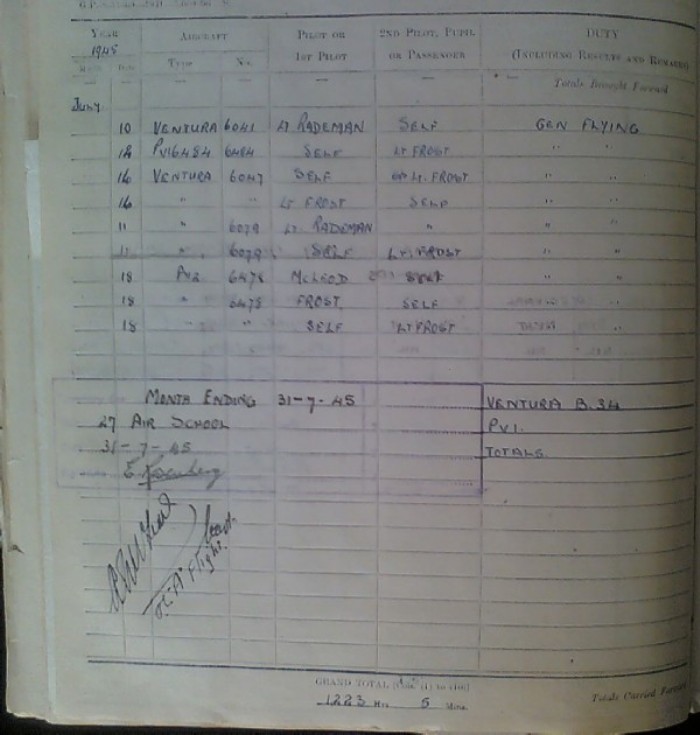 YEAR AIRCRAFT PILOT OR 2ND PILOT, PUPIL DUTY
1945 Type No. 1ST PILOT OR PASSENGER (INCLUDING RESULTS AND REMARKS)
— — — — Totals Brought Forward
July
10 VENTURA 6041 Lt RADEMAN SELF GEN FLYING
PV1 6484 6484 SELF Lt FROST " "
16 VENTURA 6047 SELF Lt. FROST " "
16 " " Lt FROST SELF " "
11 " 6079 Lt. RADEMAN " " "
11 " 6079 SELF Lt FROST " "
18 6478 McLEOD SELF " "
18 " 6478 FROST SELF "
18 " " SELF Lt FROST "
MONTH ENDING 31-7-45 VENTURA B.34
27 AIR SCHOOL PV1.
31-7-45 TOTALS
O.C. "A" Flight.
GRAND TOTAL [Cols. (1) to (10)] Totals Carried Forward
1223 Hrs. 5 Mins.